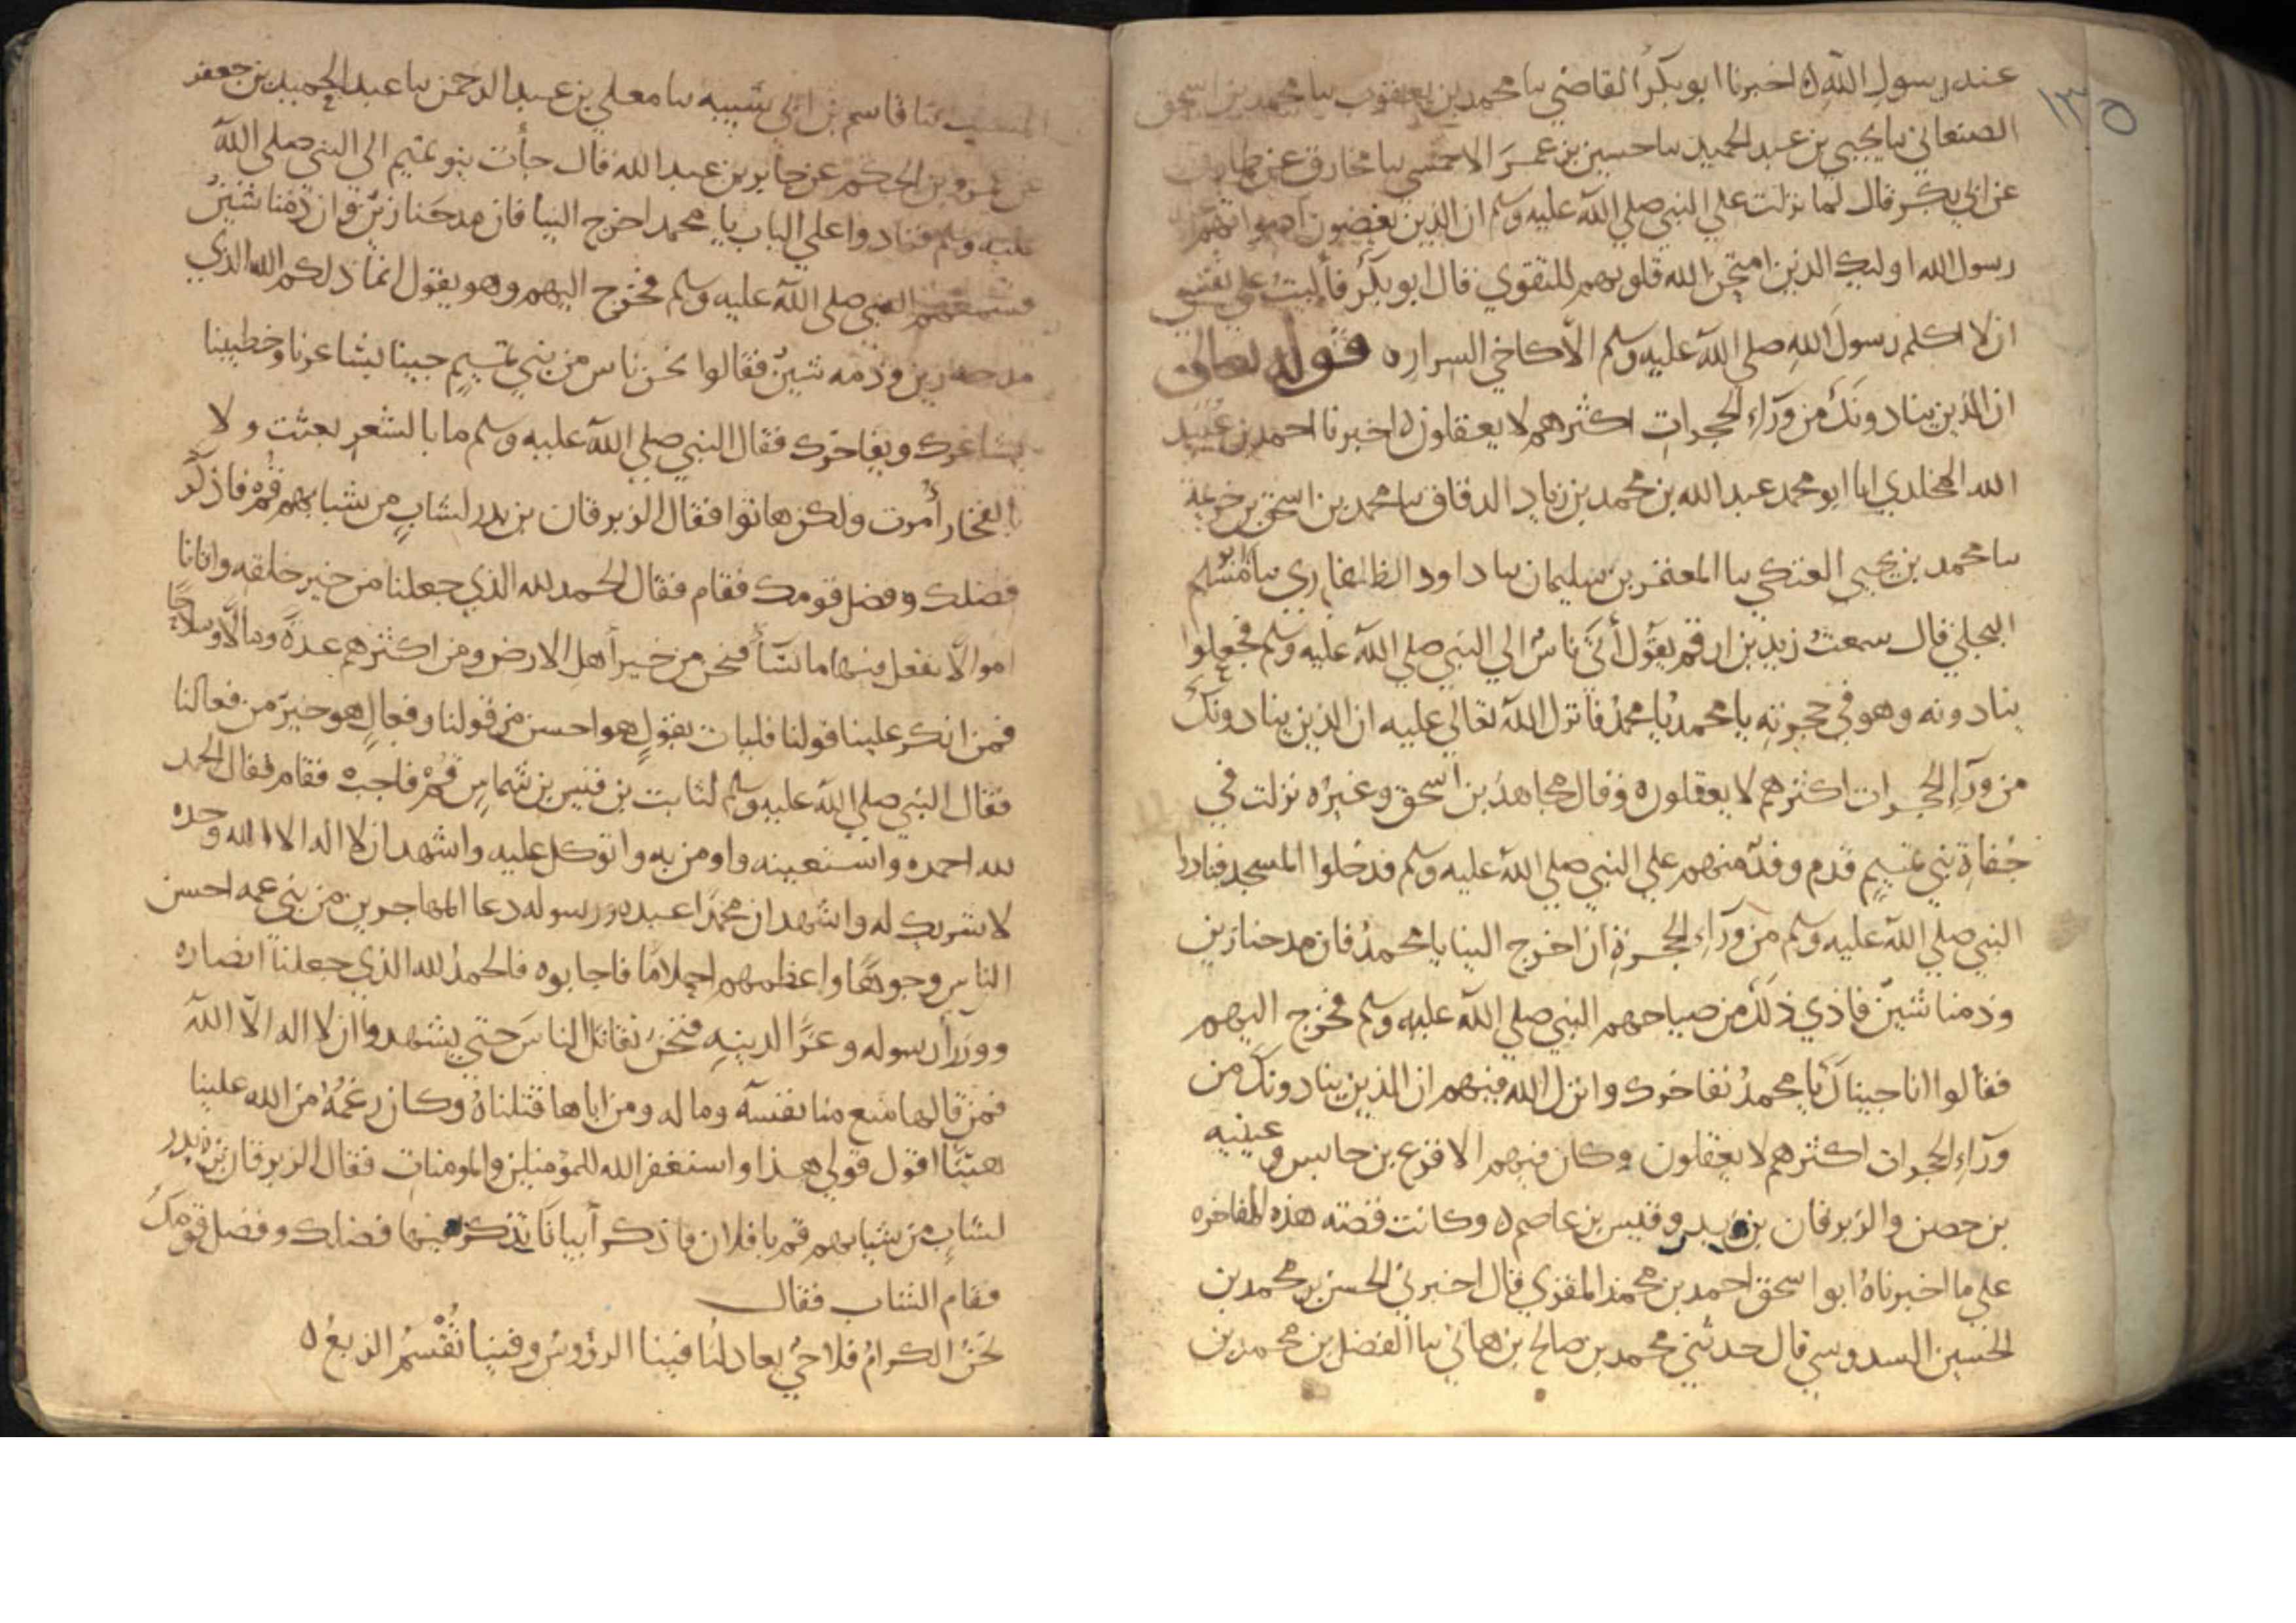 ١٣٥
عند رسول الله ه اخبرنا ابو بكر القاضي نا محمد بن يعقوب نا محمد بن اسحق
الصنعاني نا يحيي بن عبد الحميد نا حسين بن عمر الاحمسي نا مخارق عن طارق
عن ابي بكر قال لما نزلت علي النبي صلي الله عليه وسلم ان الذين يغضون اصواتهم عند
رسول الله اوليك الذين امتحن الله قلوبهم للتقوي قال ابو بكر فأليت علي نفسي
ان لا اكلم رسول الله صلي الله عليه وسلم الا كاخي السرار ه قوله تعالي
ان الذين ينادونك من ورآء الحجرات اكثرهم لا يعقلون ه اخبرنا احمد بن عبيد
الله المخلدي انا ابو محمد عبد الله بن محمد بن زياد الدقاق نا محمد بن اسحق بن خزيمة
نا محمد بن يحيي العتكي نا المعتمر بن سليمان نا داود الطفاوي نا ابو مسلم
البجلي قال سمعت زيد بن ارقم يقول أتي ناس الي النبي صلي الله عليه وسلم فجعلوا
ينادونه وهو في حجرته يا محمد يا محمد فانزل الله تعالي عليه ان الذين ينادونك
من ورآء الحجرات اكثرهم لا يعقلون ه وقال مجاهد بن اسحق وغيره نزلت في
جفاة بني تميم قدم وفد منهم علي النبي صلي الله عليه وسلم فدخلوا المسجد فنادوا
النبي صلي الله عليه وسلم من ورآء الحجرة ان اخرج الينا يا محمد فان مدحنا زين
وذمنا شين فاذي ذلك من صياحهم النبي صلي الله عليه وسلم فخرج اليهم
فقالوا انا جيناك يا محمد نفاخرك وانزل الله فيهم ان الذين ينادونك من
ورآء الحجرات اكثرهم لا يعقلون وكان فيهم الاقرع بن حابس وعيينه
بن حصن والزبرقان بن بدر وقيس بن عاصم ه وكانت قصته هذه المفاخره
علي ما اخبرناه ابو اسحق احمد بن محمد المقري قال اخبرني الحسن بن محمد بن
الحسين السدوسي قال حدثني محمد بن صالح بن هاني نا الفضل بن محمد بن
المسيب نا قاسم بن ابي شيبه نا معلي بن عبد الرحمن نا عبد الحميد بن جعفر
عن عمرو بن الحكم عن جابر بن عبد الله قال جأت بنو تميم الي النبي صلي الله
عليه وسلم فنادوا علي الباب يا محمد اخرج الينا فان مدحنا زين وان ذمنا شين
فسمعهم النبي صلي الله عليه وسلم فخرج اليهم وهو يقول انما ذلكم الله الذي
مدحه زين وذمه شين فقالوا نحن ناس من بني تميم جينا بشاعرنا وخطيبنا
نشاعرك ونفاخرك فقال النبي صلي الله عليه وسلم ما بالشعر بعثت ولا
بالفخار أمرت ولكن هاتوا فقال الزبرقان بن بدر لشاب من شبابهم قم فاذكر
فضلك وفضل قومك فقام فقال الحمد لله الذي جعلنا من خير خلقه واتانا
اموالا نفعل فيها ما نشآ فنحن من خير أهل الارض ومن اكثرهم عدة ومالا وسلاحا
فمن انكر علينا قولنا فليات بقول هو احسن من قولنا وفعال هو خير من فعالنا
فقال النبي صلي الله عليه وسلم لثابت بن قيس بن شماس قم فاجبه فقام فقال الحمد
لله احمده واستعينه واومن به واتوكل عليه واشهد ان لا اله الا الله وحده
لا شريك له واشهد ان محمدا عبده ورسوله دعا المهاجرين من بني عمه احسن
الناس وجوها واعظمهم احلاما فاجابوه فالحمد لله الذي جعلنا انصاره
ووزرأ رسوله وعزا لدينه فنحن نقاتل الناس حتي يشهدوا ان لا اله الا الله
فمن قالها منع منا نفسه وماله ومن اباها قتلناه وكان رغمه من الله علينا
هينا اقول قولي هذا واستغفر الله للمؤمنين والمومنات فقال الزبرقان بن بدر
لشاب من شبابهم قم يا فلان فاذكر أبياتا تذكر فيها فضلك وفضل قومك
فقام الشاب فقال
نحن الكرام فلا حي يعادلنا فينا الرؤوس وفينا تقسم الربع ه